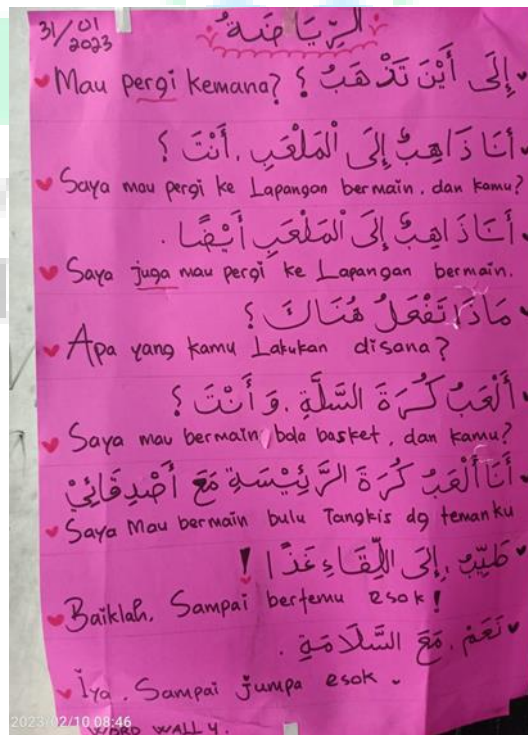 31/01
2023
الرِّيَاضَةُ
إِلَى أَيْنَ تَذْهَبُ ؟
Mau pergi kemana?
أَنَا ذَاهِبٌ إِلَى الْمَلْعَبِ. أَنْتَ ؟
Saya mau pergi ke Lapangan bermain. dan kamu?
أَنَا ذَاهِبٌ إِلَى الْمَلْعَبِ أَيْضًا .
Saya juga mau pergi ke Lapangan bermain.
مَاذَا تَفْعَلُ هُنَاكَ ؟
Apa yang kamu Lakukan disana?
أَلْعَبُ كُرَةَ السَّلَّةِ. وَ أَنْتَ ؟
Saya mau bermain bola basket, dan kamu?
أَنَا أَلْعَبُ كُرَةَ الرَّئِيْسَةِ مَعَ أَصْدِقَائِيْ
Saya Mau bermain bulu Tangkis dg temanku
طَيِّبٌ. إِلَى اللِّقَاءِ غَدًا !
Baiklah. Sampai bertemu esok!
نَعَمْ. مَعَ السَّلَامَةِ .
Iya. Sampai jumpa esok.
2023/02/10 08:46
WORD WALL 4.